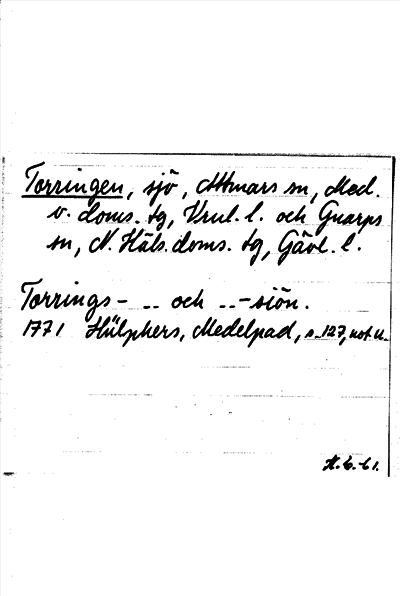 Torringen, sjö, Attmars sn, Med.
v. doms. tg, Vrnl. l. och Gnarps
sn, N. Häls. doms. tg, Gävl. l.
Torrings- _ .. och _ .. -siön.
1771 Hülphers, Medelpad, s. 127, not u.